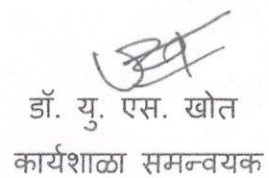 डॉ. यु. एस. खोत
कार्यशाळा समन्वयक